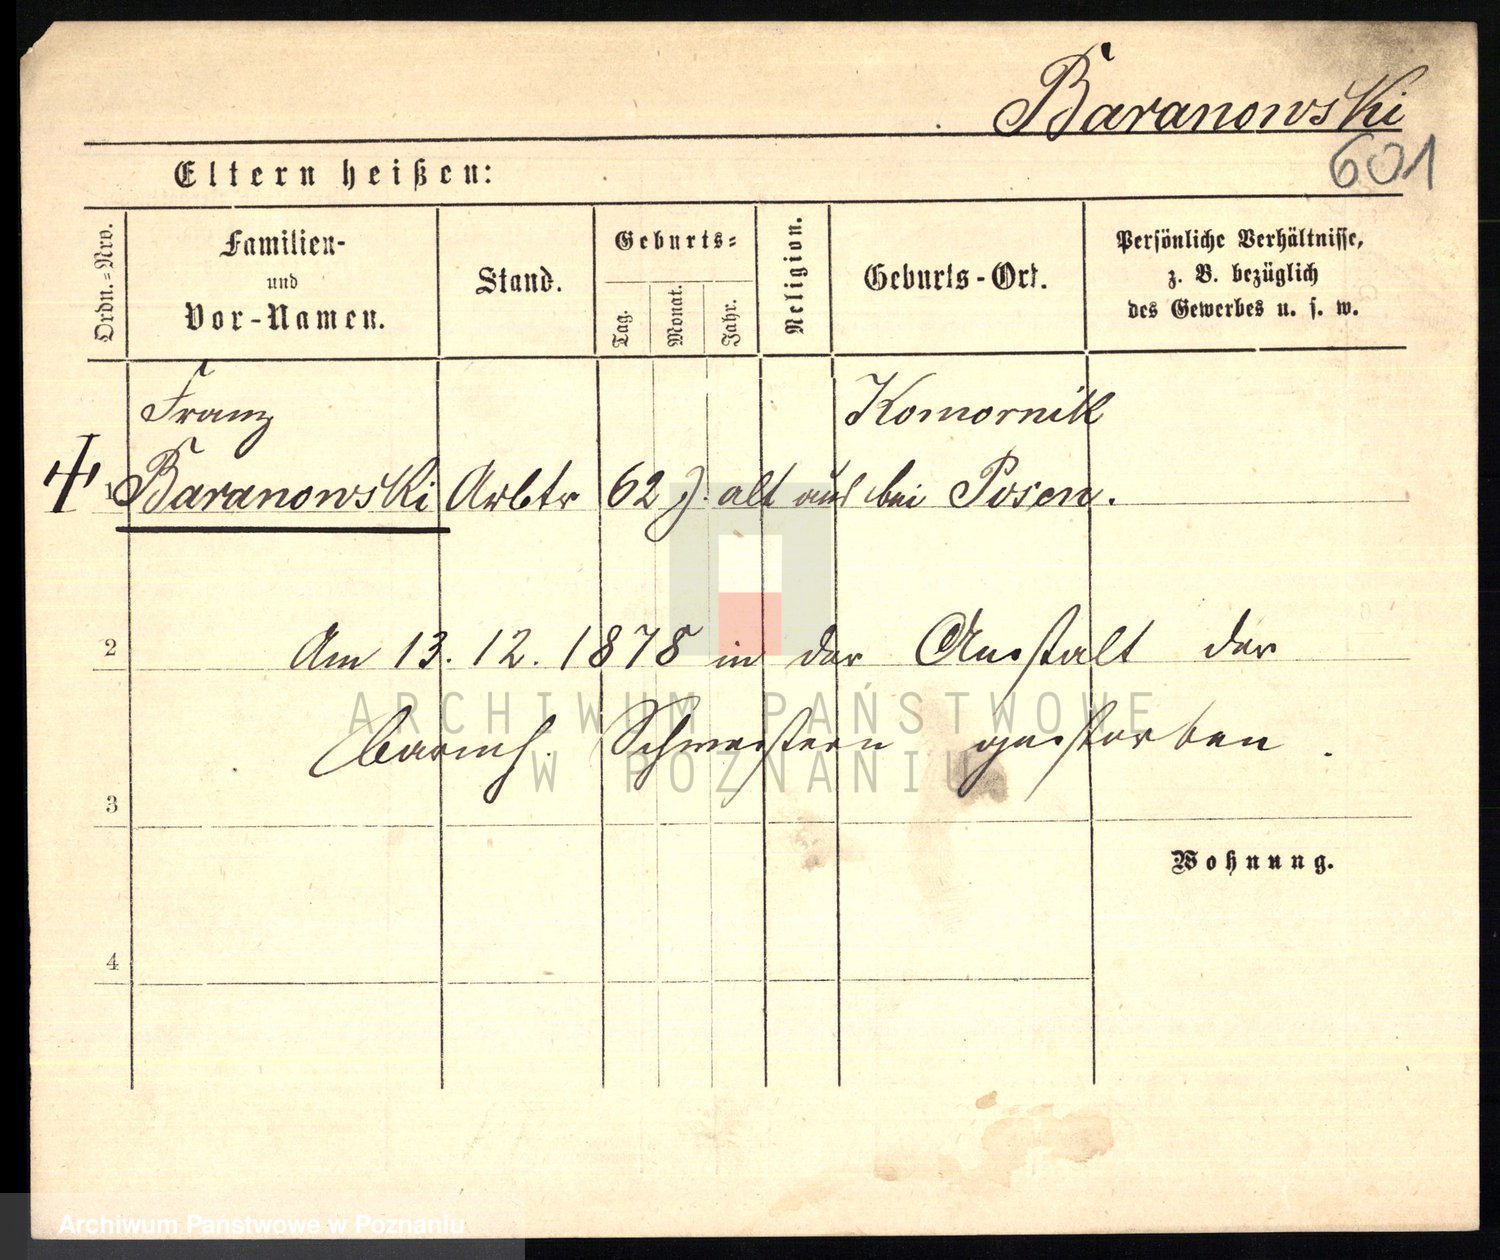 Baranowski
601
Eltern heißen:
Ordn.=Nro.
Familien-
und
Vor-Namen.
Stand.
Geburts=
Tag.
Monat.
Jahr.
Religion.
Geburts-Ort.
Persönliche Verhältnisse,
z. B. bezüglich
des Gewerbes u. s. w.
Franz
Komornik
1 Baranowski Arbtr 62 J. alt aus bei Posen.
2 Am 13. 12. 1878 in der Anstalt der
ARCHIWUM PAŃSTWOWE
barmh. Schwestern gestorben.
W POZNANIU
3
Wohnung.
4
Archiwum Państwowe w Poznaniu